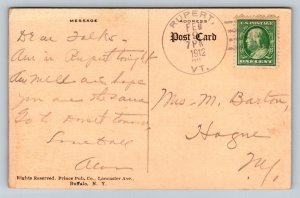 MESSAGE
Dear Folks -
Am in Rupert tonight
Am well and hope
you are the same
Go to Dorset tomorrow
Love to all
Rights Reserved. Prince Pub. Co., Lancaster Ave.,
Buffalo, N. Y.
ADDRESS
Post Card
RUPERT,
FEB
7 PM
1912
VT.
U.S. POSTAGE
ONE CENT
Mrs. M. Barton,
Hague
N.Y.